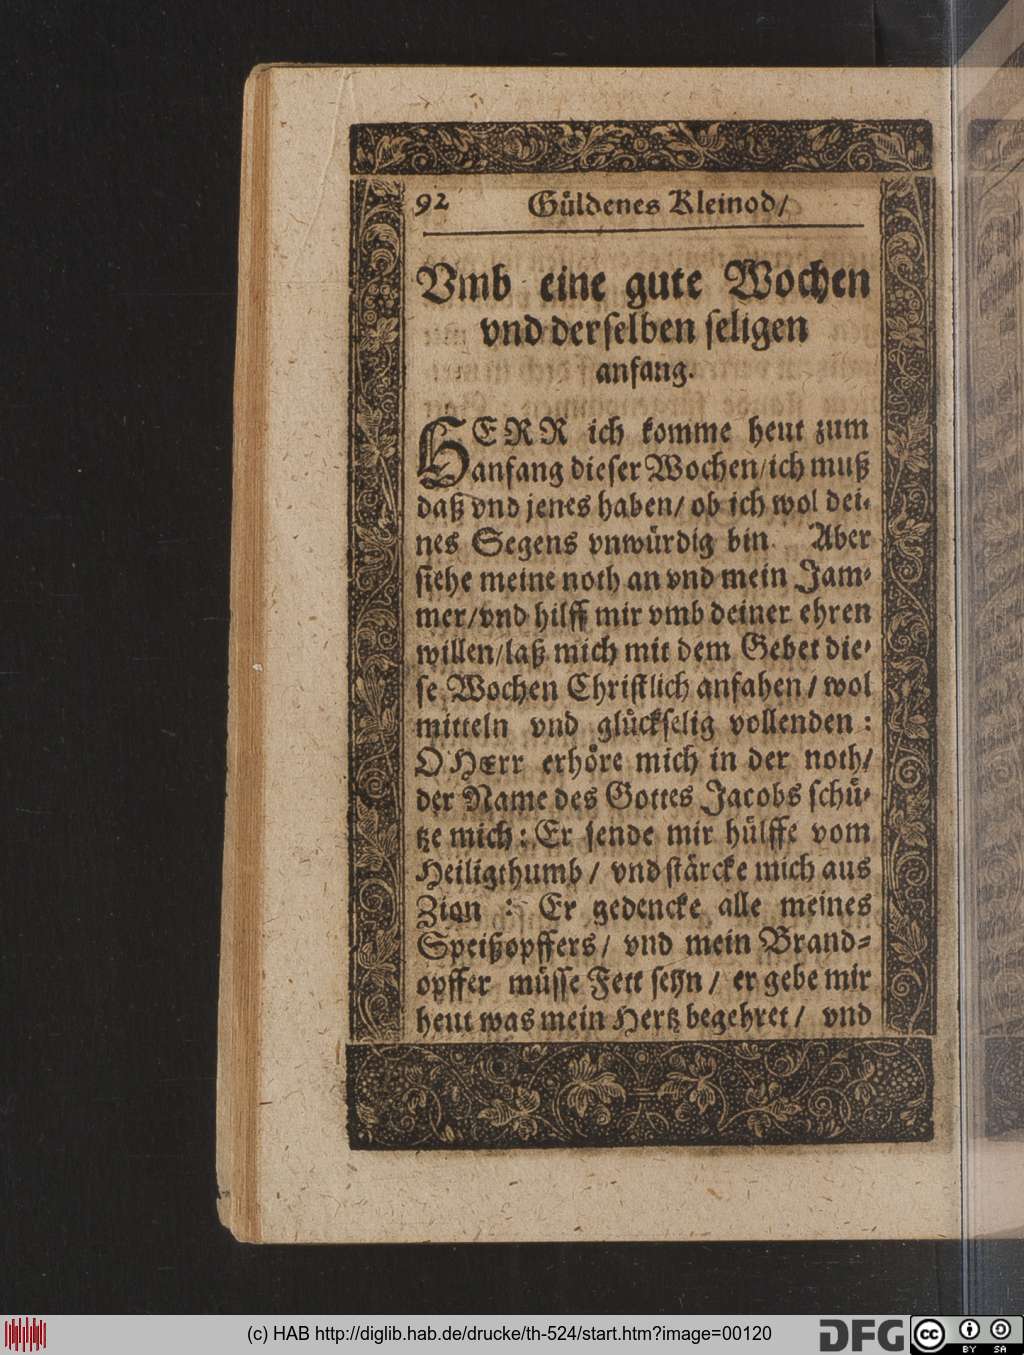 92 Güldenes Kleinod/
Vmb eine gute Wochen
vnd derselben seligen
anfang.
HERR ich komme heut zum
anfang dieser Wochen/ich muß
daß vnd jenes haben/ ob ich wol dei-
nes Segens vnwürdig bin. Aber
siehe meine noth an vnd mein Jam-
mer/vnd hilff mir vmb deiner ehren
willen/laß mich mit dem Gebet die-
se Wochen Christlich anfahen/ wol
mitteln vnd glückselig vollenden:
O HErr erhöre mich in der noth/
der Name des Gottes Jacobs schü-
tze mich: Er sende mir hülffe vom
Heiligthumb/ vnd stärcke mich aus
Zion : Er gedencke alle meines
Speißopffers/ vnd mein Brand-
opffer müsse Fett seyn/ er gebe mir
heut was mein Hertz begehret/ vnd
(c) HAB http://diglib.hab.de/drucke/th-524/start.htm?image=00120
DFG
cc BY SA